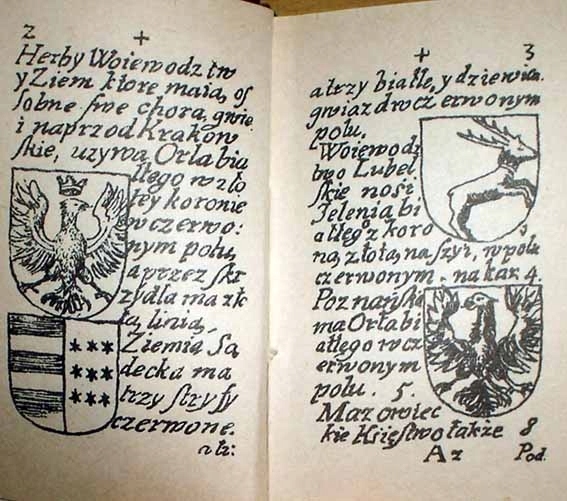 2
+
Herby Woiewodztw
y Ziem ktore maia, os
sobne swe chora, gwie
i naprzod Krakow
skie, uzywa Orła bia
łego w zło
tey koronie
w czerwo:
nym polu,
a przez skr
zydła ma zło
ta, linia,
Ziemia Sa
decka ma
trzy stryfy
czerwone.
+
3
a trzy białłe, y dziewięc
gwiazd w czerwonym
polu,
Woiewodz
two Lubel
skie nosi
Jelenia bi
ałłego z koro
na, złota, na szyi, w polu
czerwonym. na kar. 4.
Poznańskie
ma Orła bi
ałłego w cz
erwonym
polu. 5.
Mazowiec
kie Księstwo także 8
A2 Pod.